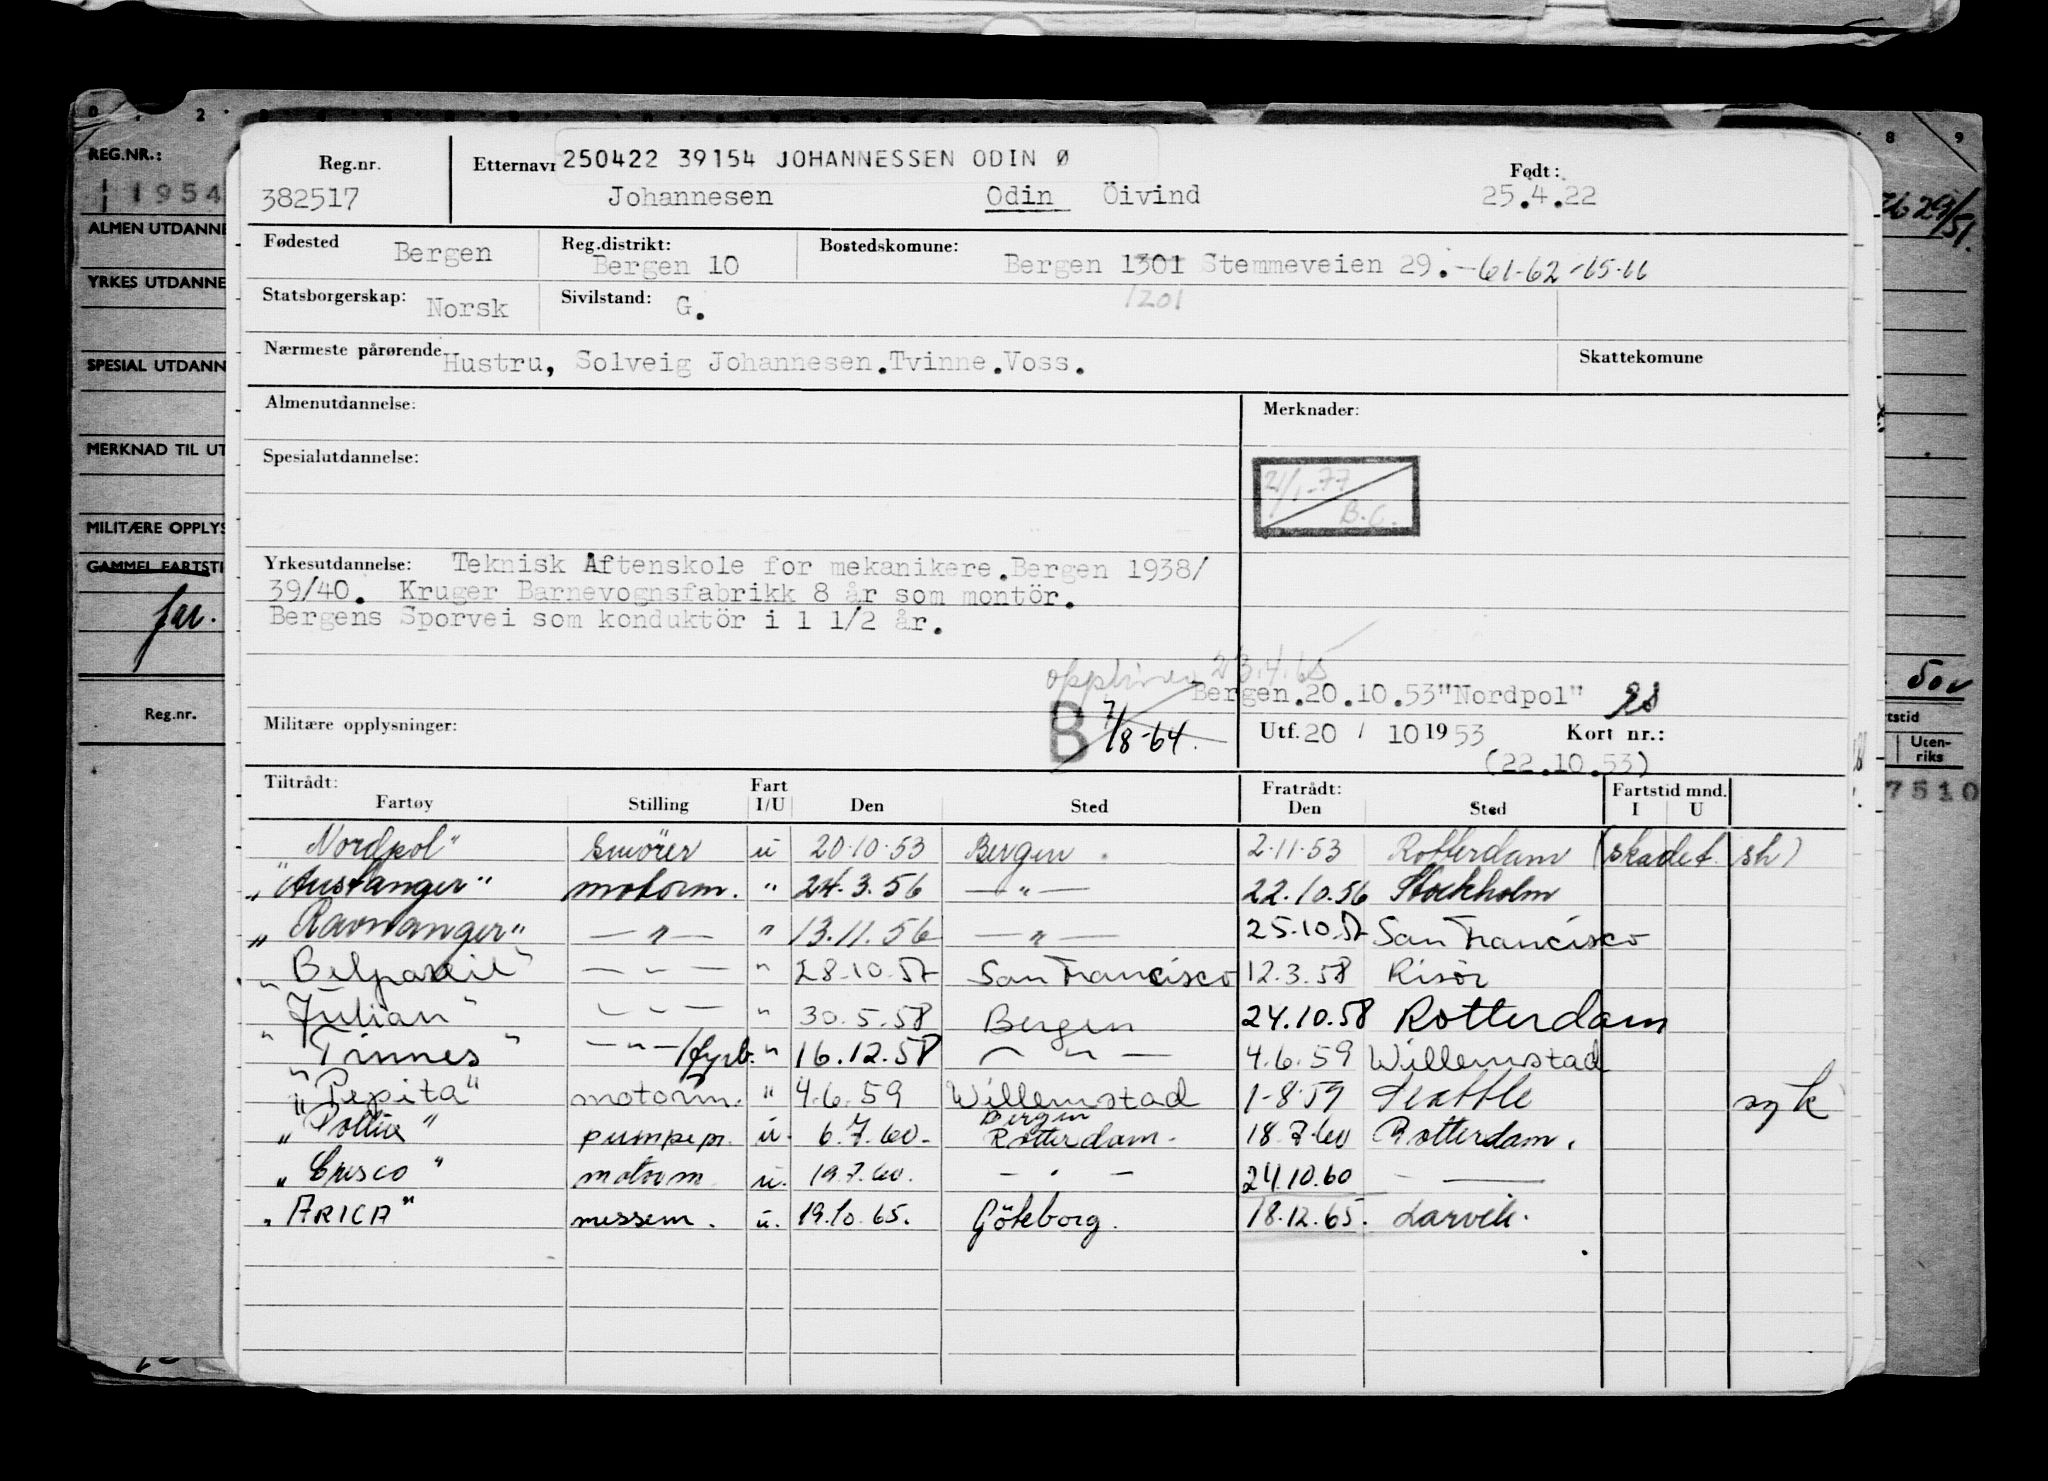 REG.NR.:
1954
ALMEN UTDANNE
YRKES UTDANNE
SPESIAL UTDANN
MERKNAD TIL UT
MILITÆRE OPPLYS
GAMMEL FARTSTI
Reg.nr.
Reg.nr. Etternavn 250422 39154 JOHANNESSEN ODIN Ø Født:
382517 Johannesen Odin Öivind 25.4.22
Fødested Bergen Reg.distrikt: Bergen 10 Bostedskomune: Bergen 1301 Stemmeveien 29.-61-62-65-66
1201
Statsborgerskap: Norsk Sivilstand: G.
Nærmeste pårørende Hustru, Solveig Johannesen.Tvinne.Voss. Skattekomune
Almenutdannelse: Merknader:
Spesialutdannelse:
21/1-77
B.C.
Yrkesutdannelse: Teknisk Aftenskole for mekanikere.Bergen 1938/
39/40. Kruger Barnevognsfabrikk 8 år som montör.
Bergens Sporvei som konduktör i 1 1/2 år.
23.4.65
Bergen.20.10.53"Nordpol"
Militære opplysninger: B 7/8-64. Utf.20 / 10 1953 Kort nr.:
(22.10.53)
Tiltrådt: Fratrådt: Fartstid mnd.
Fartøy Stilling Fart I/U Den Sted Den Sted I U
"Nordpol" Smörer u 20.10.53 Bergen. 2.11.53 Rotterdam (skadet sh)
"Austanger" motorm. " 24.3.56 —"— 22.10.56 Stockholm
"Ravnanger" —"— " 13.11.56 —"— 25.10.57 San Francisco
"Belpareil" —"— " 28.10.57 San Francisco 12.3.58 Risör
"Julian" —"— " 30.5.58 Bergen 24.10.58 Rotterdam
"Finnes" —"—/fyrb. " 16.12.58 —"— 4.6.59 Willemstad
"Pepita" motorm. " 4.6.59 Willemstad 1-8-59 Seattle syk
"Pollux" pumpem. u. 6.7.60.- Bergen Rotterdam.- 18.7.60 Rotterdam.
motorm u. 19.7.60. — . — 24.10.60 - —
"ARICA" messem. u. 19.10.65. Göteborg. 18.12.65. Larvik.
8 9
500
tstid
Uten-
riks
7510